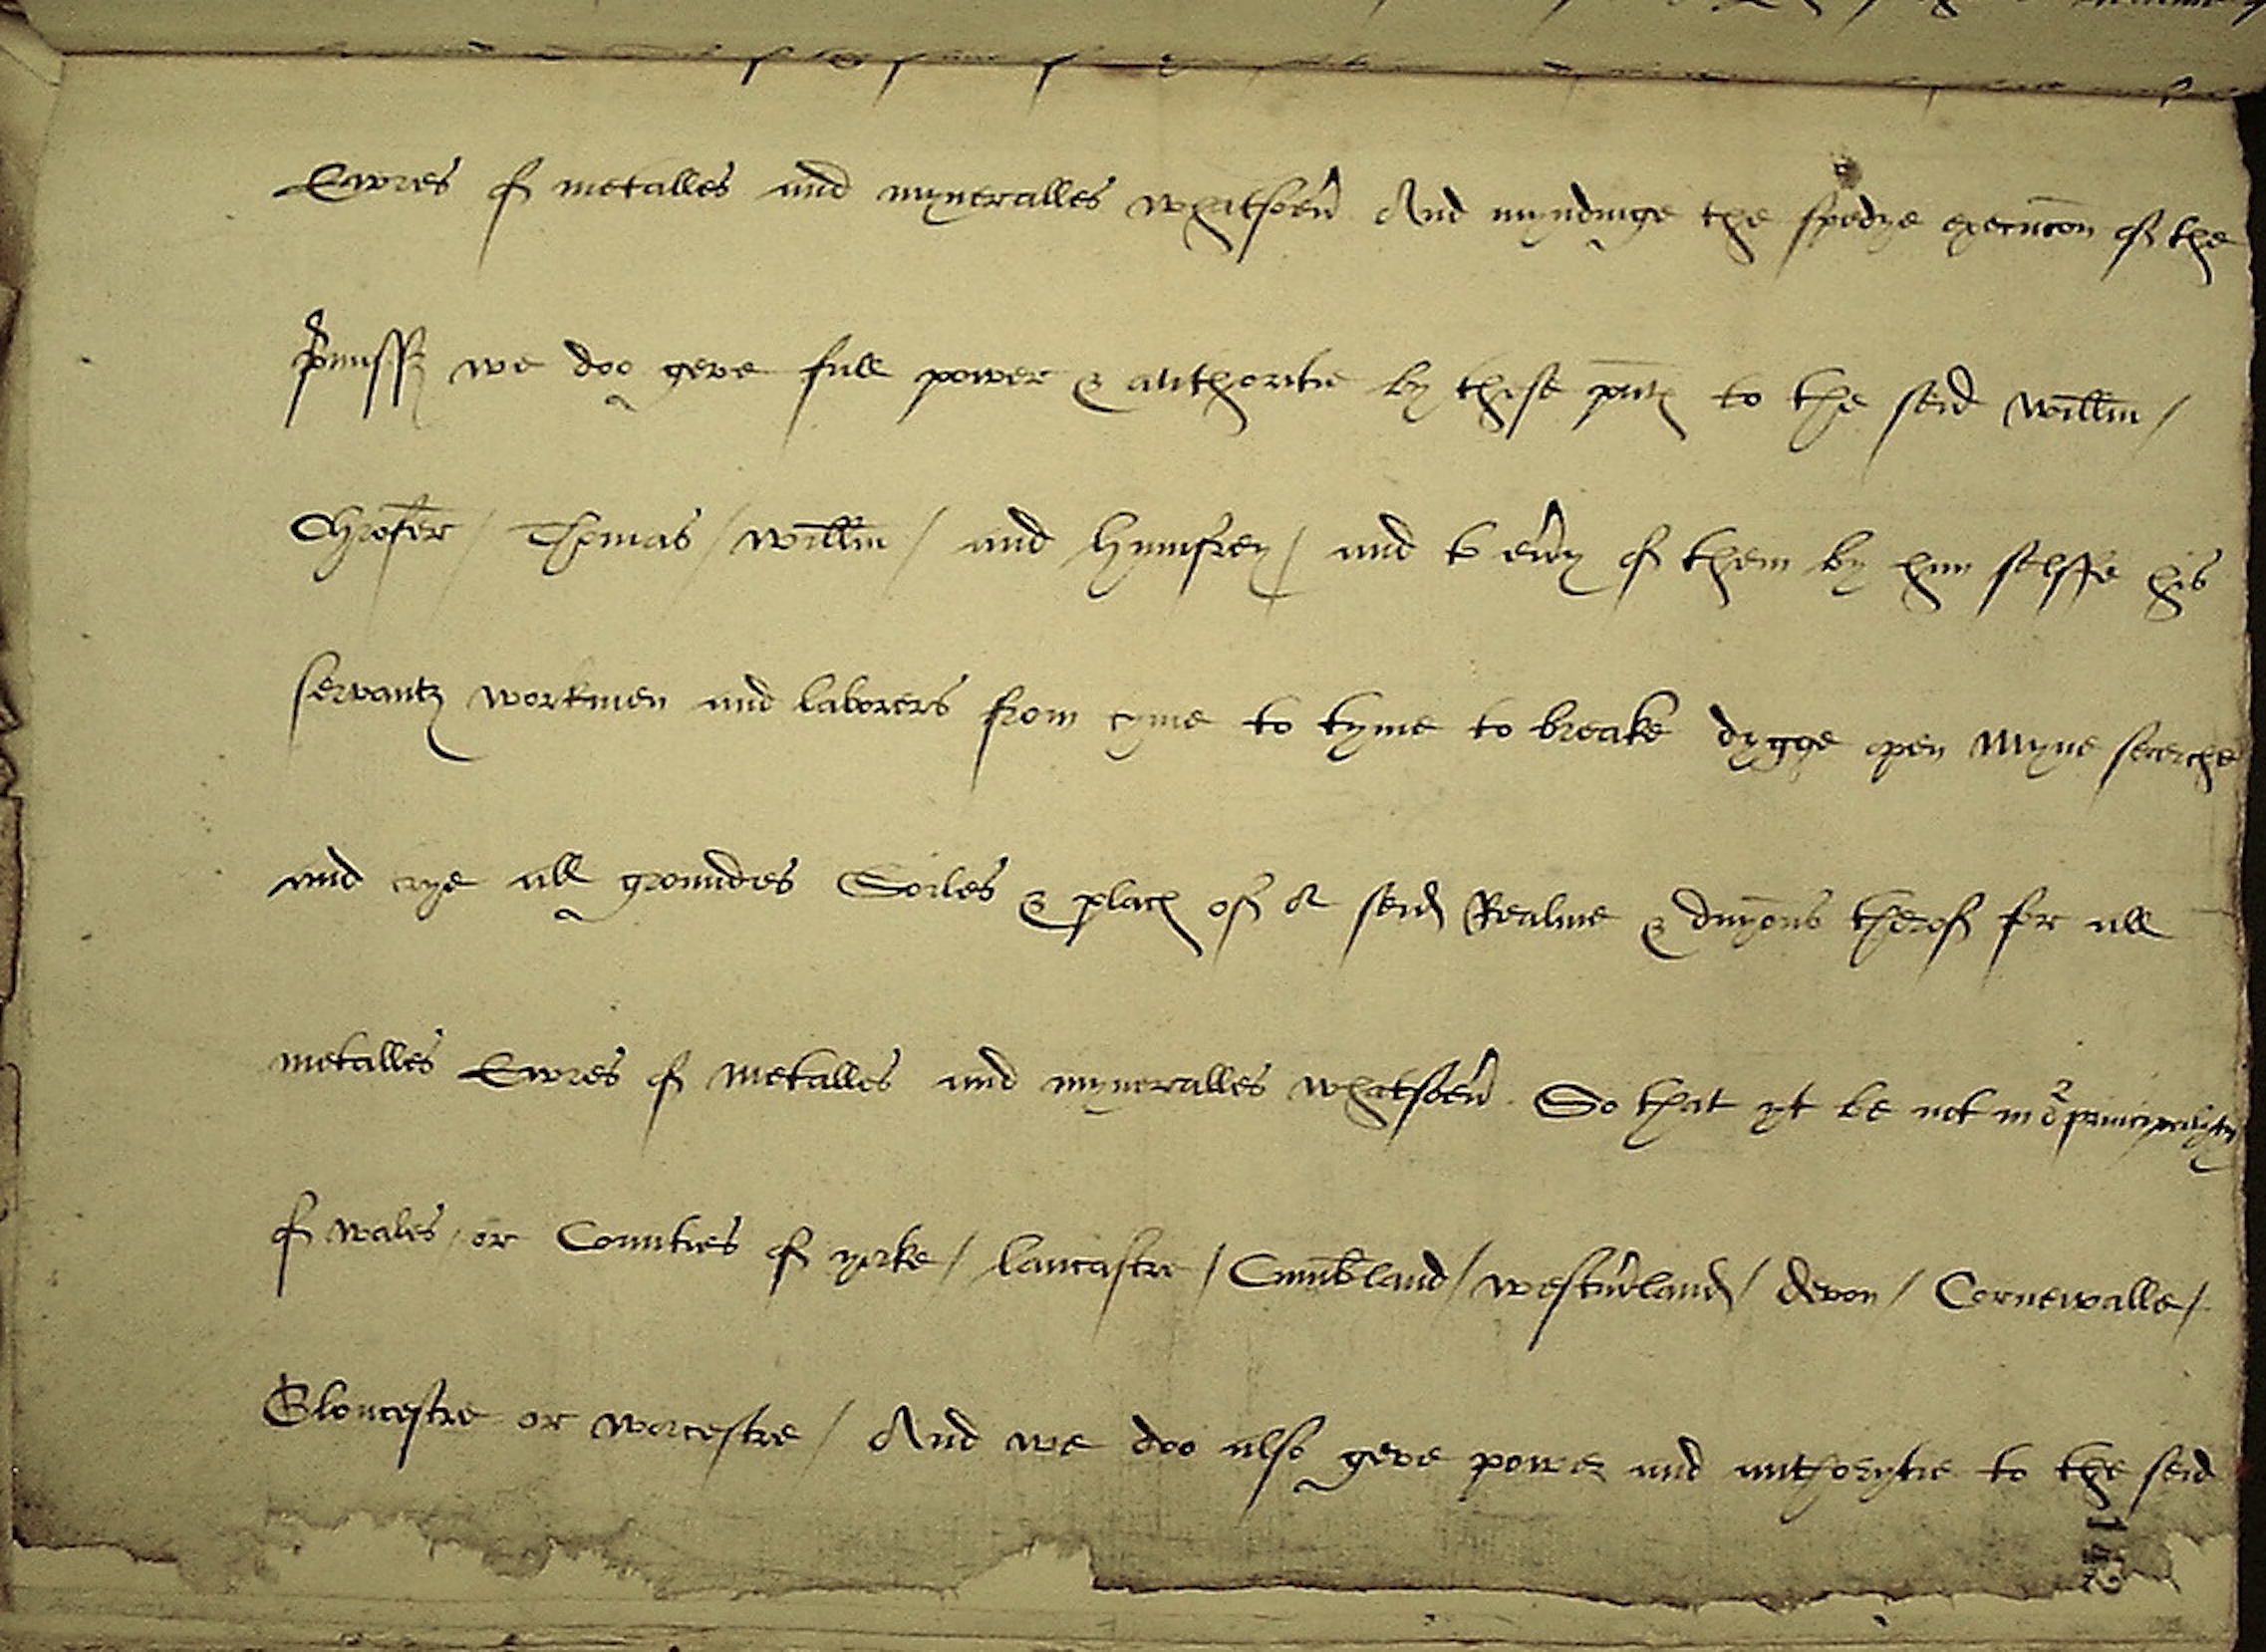 Ewres of metalles and myneralles whatsoeu̓ And myndinge the spedye execuc̄on of the
p̓missz we doo geve full power & authoritie by these p̄ntȝ to the seid Will̄m /
Chr̄ofer / Thomas / Will̄m / and Humfrey / and to eu̓y of them by hym selffe his
servantȝ workmen and laborers from tyme to tyme to breake dygge open Myne serche
and trye all groundes Soiles & placȝ of oʳ seid Realme & dm̄yons therof for all
metalles Ewres of metalles and myneralles whatsoeu̓ . So that yt be not in oʳ principalyty
of Wales / or Counties of yorke / Lancastre / Cumb̄land / Westm̓land / devon / Cornewalle /
Gloucestre or Worcestre / And we doo also geve power and authorytie to the seid
142